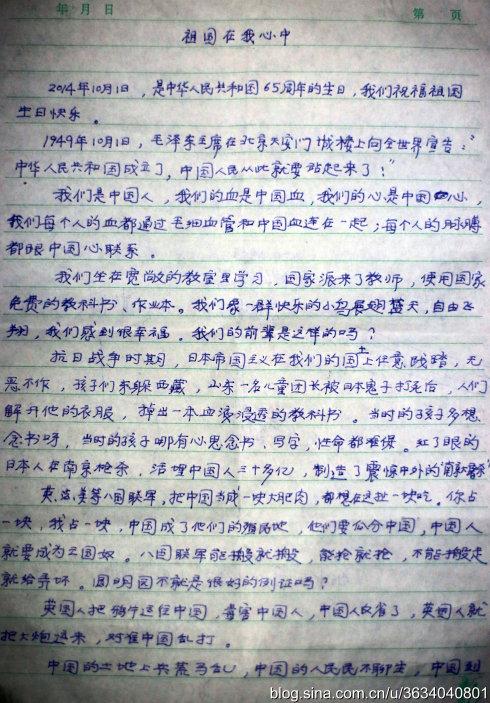 年 月 日
第 页
祖国在我心中
2014年10月1日，是中华人民共和国65周年的生日，我们祝福祖国
生日快乐。
1949年10月1日，毛泽东主席在北京天安门城楼上向全世界宣告：“
中华人民共和国成立了，中国人民从此就要站起来了！”
我们是中国人，我们的血是中国血，我们的心是中国心，
我们每个人的血都通过毛细血管和中国血连在一起；每个人的脉搏
都跟中国心联系。
我们坐在宽敞的教室里学习，国家派来了教师，使用国家
免费的教科书、作业本。我们象一群快乐的小鸟展翅蓝天，自由飞
翔，我们感到很幸福。我们的前辈是这样的吗？
抗日战争时期，日本帝国主义在我们的国土上任意践踏，无
恶不作，孩子们东躲西藏，山东一名儿童团长被日本鬼子打死后，人们
解开他的衣服，掉出一本血浸透的教科书。当时的孩子多想
念书呀，当时的孩子哪有心思念书、写字，性命都难保。红了眼的
日本人在南京枪杀，活埋中国人三十多亿，制造了震惊中外的
英、法、美等八国联军，把中国当成一块大肥肉，都想在这扯一块吃。你占
一块，我占一块，中国成了他们的殖民地，他们要瓜分中国，中国人
就要成为亡国奴。八国联军能搬就搬，能抢就抢，不能搬走
就给弄坏。圆明园不就是很好的例证吗？
英国人把鸦片送往中国，毒害中国人，中国人反省了，英国人就
把大炮运来，对准中国乱打。
中国的土地上兵荒马乱，中国的人民民不聊生，中国到
blog.sina.com.cn/u/3634040801